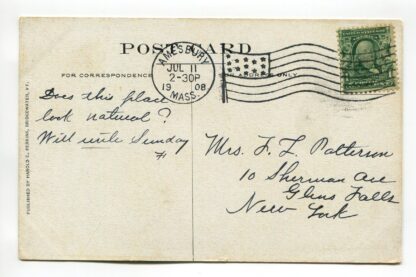 POST CARD
FOR CORRESPONDENCE
ADDRESS ONLY
AMESBURY
JUL 11
2-30P
1908
MASS.
Does this place
look natural?
Will write Sunday
H
Mrs. F. L. Patterson
10 Sherman Ave
Glens Falls
New York
PUBLISHED BY HAROLD C. PERKINS, BRIDGEWATER, VT.